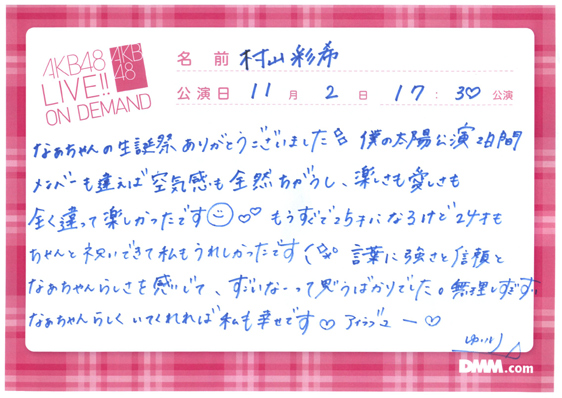 AKB48
LIVE!!
ON DEMAND
AKB
48
名前 村山彩希
公演日 11月2日 17:30公演
なぁちゃんの生誕祭ありがとうございました 僕の太陽公演2日間
メンバーも違えば空気感も全然ちがうし、楽しさも愛しさも
全く違って楽しかったです もうすぐで25才になるけど24才も
ちゃんと祝いできて私もうれしかったです 言葉に強さと信頼と
なぁちゃんらしさを感じて、すごいなーって思うばかりでした。無理しすぎず
なぁちゃんらしくいてくれれば私も幸せです♡ アイラブユー♡
ゆいり
DMM.com